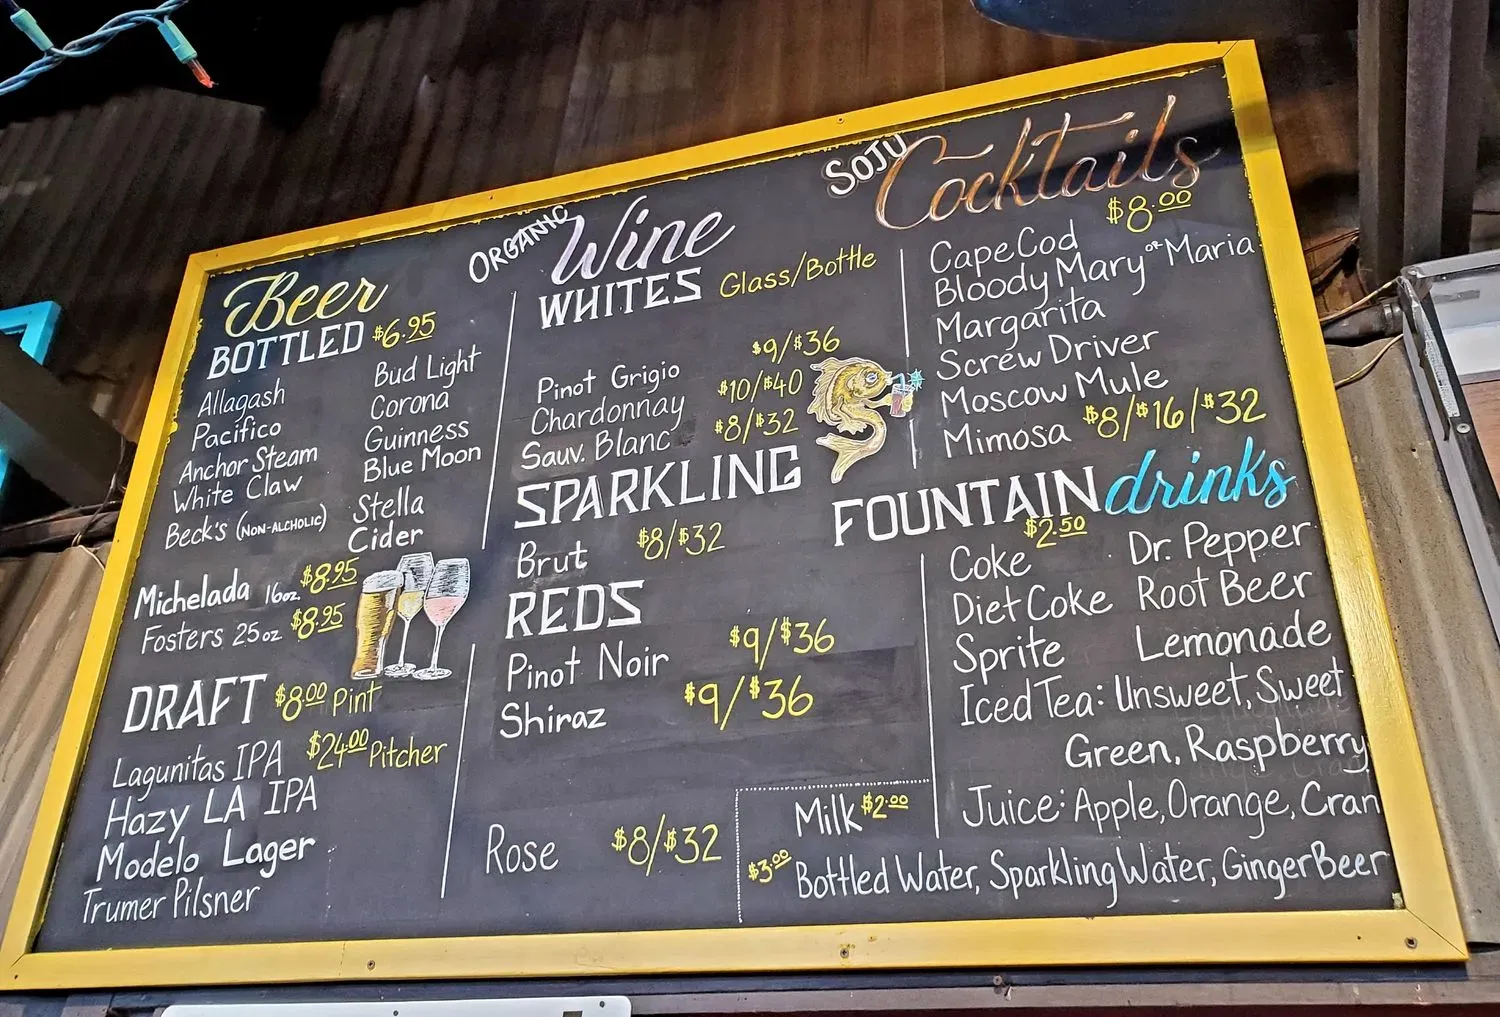 Beer
BOTTLED $6.95
Allagash
Pacifico
Anchor Steam
White Claw
Beck's (NON-ALCHOLIC)
Bud Light
Corona
Guinness
Blue Moon
Stella
Cider
Michelada 16oz. $8.95
Fosters 25oz $8.95
DRAFT $8.00 Pint
$24.00 Pitcher
Lagunitas IPA
Hazy LA IPA
Modelo Lager
Trumer Pilsner
ORGANIC Wine
WHITES Glass/Bottle
Pinot Grigio $9/$36
Chardonnay $10/$40
Sauv. Blanc $8/$32
SPARKLING
Brut $8/$32
REDS
Pinot Noir $9/$36
Shiraz $9/$36
Rose $8/$32
SOJU Cocktails
$8.00
Cape Cod
Bloody Mary or Maria
Margarita
Screw Driver
Moscow Mule
Mimosa $8/$16/$32
FOUNTAIN drinks
$2.50
Coke
Diet Coke
Sprite
Dr. Pepper
Root Beer
Lemonade
Iced Tea: Unsweet, Sweet
Green, Raspberry
Juice: Apple, Orange, Cran
Milk $2.00
$3.00 Bottled Water, Sparkling Water, Ginger Beer